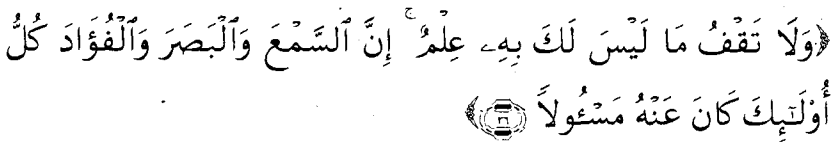 ﴿وَلَا تَقْفُ مَا لَيْسَ لَكَ بِهِۦ عِلْمٌ ۚ إِنَّ ٱلسَّمْعَ وَٱلْبَصَرَ وَٱلْفُؤَادَ كُلُّ
أُوْلَـٰٓئِكَ كَانَ عَنْهُ مَسْـُٔولاً﴾